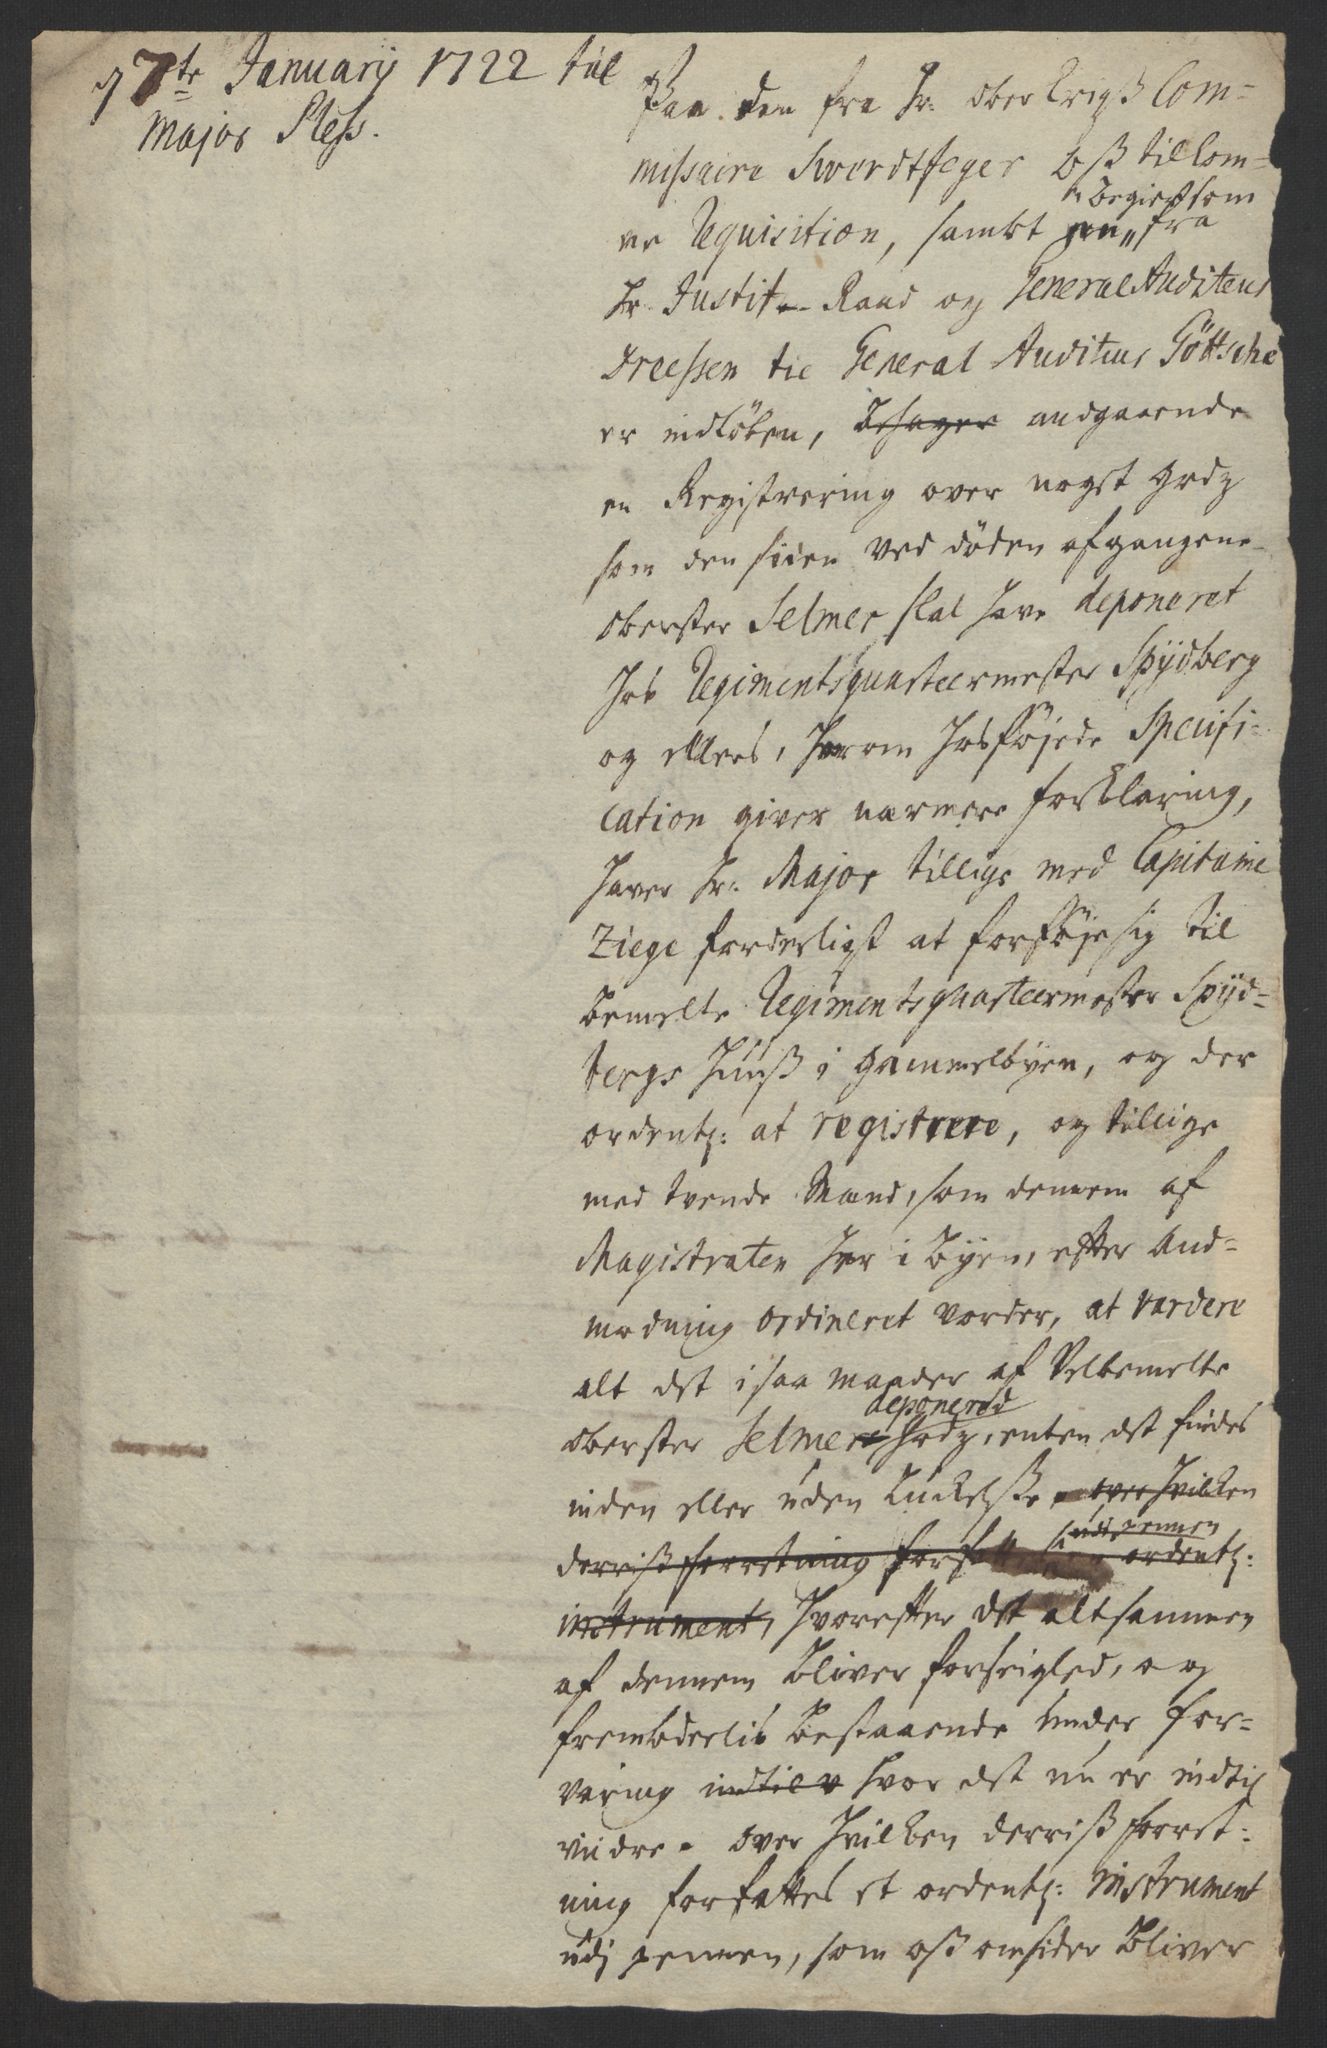 d 7te Januarij 1722 til
Major Pless.
Paa den fra Hr: ober Krigß Com=
missaire Swerdtfeger oß tilkom=
ne Requisition, sambt en
begier som
fra
Hr. Justitz Raad og General Auditeur
Dreessen til General Auditeur Göttsche
er indløben, besager andgaaende
en Registrering over noget godz
som den siden ved døden afgangene
oberster Selmer skal have deponeret
hos Regimentsquarteermester Spÿdberg
og ellers, hvorom hosføjede Specifi=
cation giver nærmere forklaring,
haver Hr: Major tillige med Capitaine
Ziege forderligst at forføje sig til
bemelte Regimentsquarteermester Spÿd=
bergs Huuß i gammelbyen, og der
ordentl: at registrere, og tillige
med tvende Mænd, som dennem af
Magistraten her i byen, efter And=
modning ordineret vorder, at vardere
alt det i saa maader af Velbemelte
deponered
oberster Selmer godz, enten det findes
inden eller uden Luckelße, over hvilken
udi pennen
derris forretning forfattes ordentl:
instrument, hvorefter det altsammen
af dennem bliver forseigled, og
frembderlis bestaaende under for=
varing indtil v hvor det nu er indtil
viidre. over hvilken derriß forret=
ning forfattes et ordentl: instrument
udj pennen, som oß omsider bliver